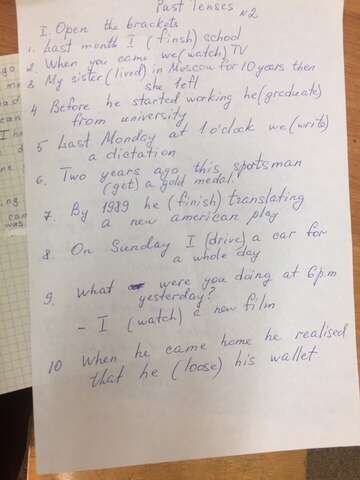 Past Tenses №2
I. Open the brackets
1. Last month I (finsh) school
2. When you came we (watch) TV
3. My sister (lived) in Moscow for 10 years then
she left
4 Before he started working he (graduate)
from university
5 Last Monday at 1 o'clock we (write)
a dictation
6. Two years ago this sportsman
(get) a gold medal.
7. By 1989 he (finish) translating
a new american play
8. On Sunday I (drive) a car for
a whole day
9. What were you doing at 6 p.m
yesterday?
- I (watch) a new film
10 When he came home he realised
that he (loose) his wallet.